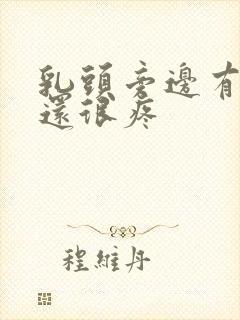 乳頭旁邊有
還很疼
程維丹